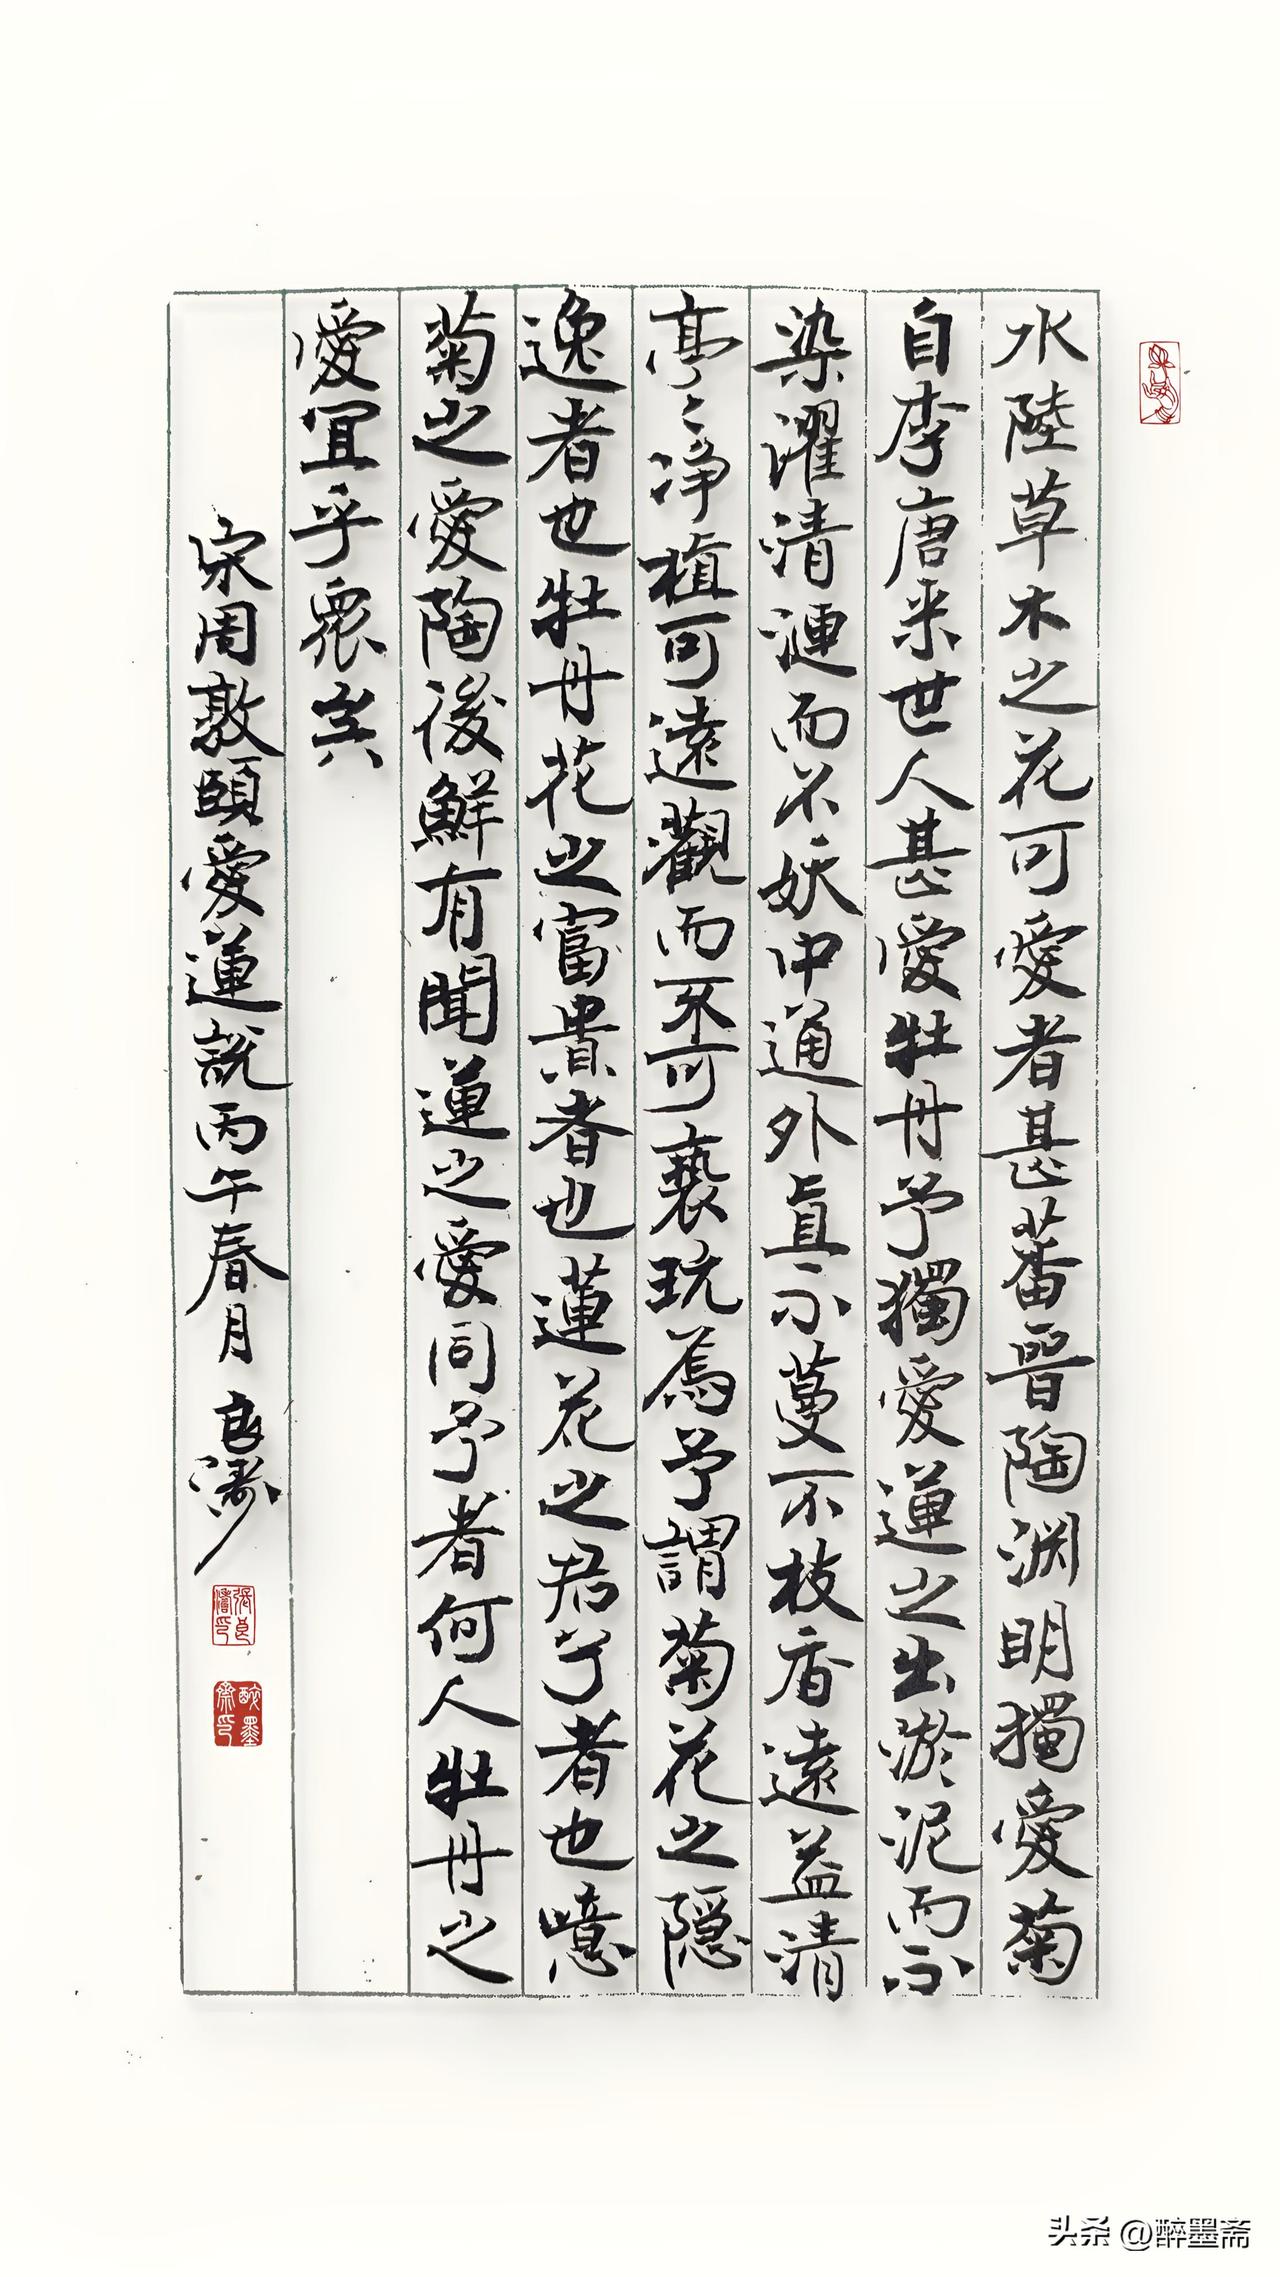 水陸草木之花可愛者甚蕃晉陶渊明獨愛菊
自李唐来世人甚愛牡丹予獨愛蓮之出淤泥而不
染濯清漣而不妖中通外直不蔓不枝香遠益清
亭〻淨植可遠觀而不可褻玩焉予謂菊花之隱
逸者也牡丹花之富貴者也蓮花之君子者也噫
菊之愛陶後鮮有聞蓮之愛同予者何人牡丹之
愛宜乎眾矣
宋周敦頤愛蓮說丙午春月良濤
張良濤印
醉墨齋印
头条 @醉墨斋